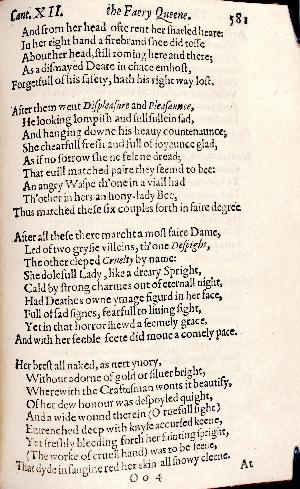 Cant. XII. the Faery Queene. 581
And from her head ofte rent her snarled heare:
In her right hand a firebrand shee did tosse
About her head, still roming here and there;
As a dismayed Deare in chace embost,
Forgetfull of his safety, hath his right way lost.
After them went Displeasure and Pleasaunce,
He looking lompish and full sullein sad,
And hanging downe his heauy countenaunce;
She chearfull fresh and full of ioyaunce glad,
As if no sorrow she ne felt ne dread;
That euill matched paire they seemd to bee:
An angry Waspe th'one in a viall had
Th'other in hers an hony-lady Bee,
Thus marched these six couples forth in faire degree.
After all these there marcht a most faire Dame,
Led of two grysie villeins, th'one Despight,
The other cleped Cruelty by name:
She dolefull Lady, like a dreary Spright,
Cald by strong charmes out of eternall night,
Had Deathes owne ymage figurd in her face,
Full of sad signes, fearfull to liuing sight,
Yet in that horror shewd a seemely grace,
And with her feeble feete did moue a comely pace.
Her brest all naked, as nett yuory,
Without adorne of gold or siluer bright,
Wherewith the Craftesman wonts it beautify,
Of her dew honour was despoyled quight,
And a wide wound therein (O ruefull sight)
Entrenched deep with knyfe accursed keene,
Yet freshly bleeding forth her fainting spright,
(The worke of cruell hand) was to be seene,
That dyde in sanguine red her skin all snowy cleene.
At
Oo4